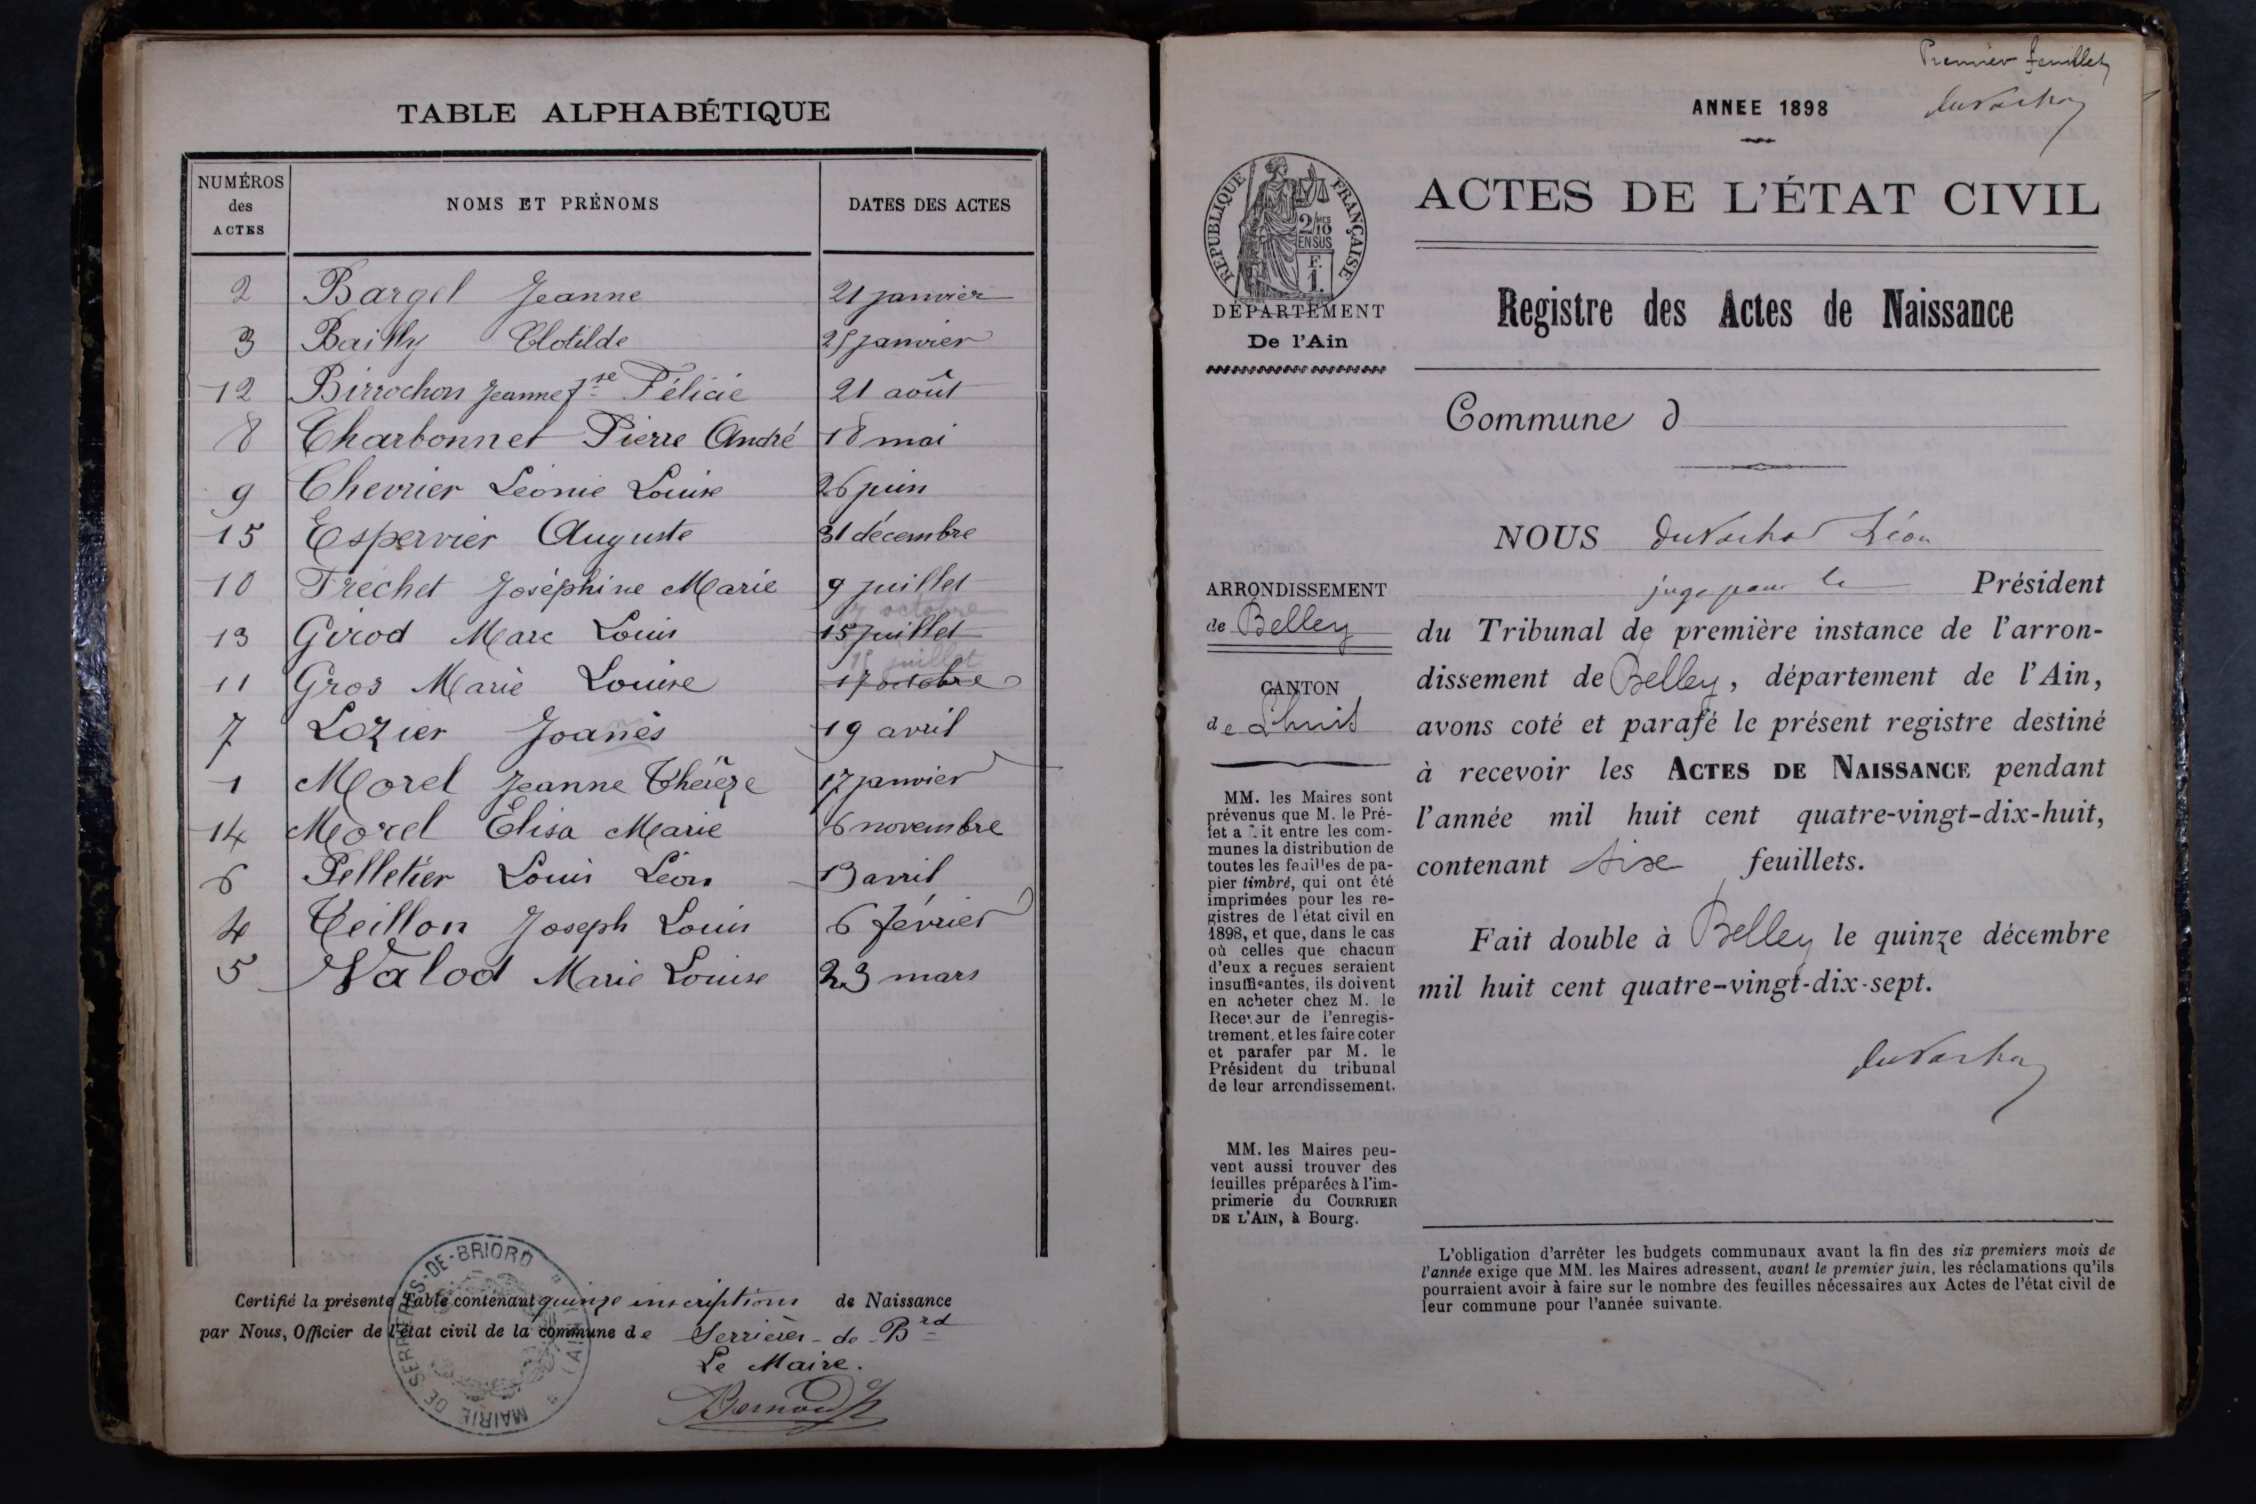 TABLE ALPHABÉTIQUE
NUMÉROS des ACTES NOMS ET PRÉNOMS DATES DES ACTES
2 Bargel Jeanne 21 janvier
3 Bailly Clotilde 25 janvier
12 Birrochon Jeanne Jse Félicie 21 août
8 Charbonnet Pierre André 18 mai
9 Chevrier Léonie Louise 26 juin
15 Espervier Auguste 31 décembre
10 Fréchet Joséphine Marie 9 juillet
17 octobre
13 Girod Marc Louis 15 juillet
15 juillet
11 Gros Marie Louise 17 octobre
7 Lozier Joanès 19 avril
1 Morel Jeanne Théreze 17 janvier
14 Morel Elisa Marie 6 novembre
6 Pelletier Louis Léon 13 avril
4 Teillon Joseph Louis 6 février
5 Valod Marie Louise 23 mars
Certifié la présente Table contenant quinze inscriptions de Naissance
par Nous, Officier de l'état civil de la commune de Serrières-de-Brd
Le Maire.
MAIRIE DE SERRIÈRES-DE-BRIORD (AIN)
Premier feuillet
ANNEE 1898
RÉPUBLIQUE FRANÇAISE
2/10 EN SUS
F. 1.
DÉPARTEMENT
De l'Ain
ACTES DE L'ÉTAT CIVIL
Registre des Actes de Naissance
Commune d
ARRONDISSEMENT
de Belley
CANTON
de Lhuis
MM. les Maires sont
prévenus que M. le Pré-
fet a fait entre les com-
munes la distribution de
toutes les feuilles de pa-
pier timbré, qui ont été
imprimées pour les re-
gistres de l'état civil en
1898, et que, dans le cas
où celles que chacun
d'eux a reçues seraient
insuffisantes, ils doivent
en acheter chez M. le
Receveur de l'enregis-
trement, et les faire coter
et parafer par M. le
Président du tribunal
de leur arrondissement.
MM. les Maires peu-
vent aussi trouver des
feuilles préparées à l'im-
primerie du COURRIER
DE L'AIN, à Bourg.
NOUS Duvachat Léon
juge pour le Président
du Tribunal de première instance de l'arron-
dissement de Belley, département de l'Ain,
avons coté et parafé le présent registre destiné
à recevoir les ACTES DE NAISSANCE pendant
l'année mil huit cent quatre-vingt-dix-huit,
contenant six feuillets.
Fait double à Belley le quinze décembre
mil huit cent quatre-vingt-dix-sept.
L'obligation d'arrêter les budgets communaux avant la fin des six premiers mois de
l'année exige que MM. les Maires adressent, avant le premier juin, les réclamations qu'ils
pourraient avoir à faire sur le nombre des feuilles nécessaires aux Actes de l'état civil de
leur commune pour l'année suivante.